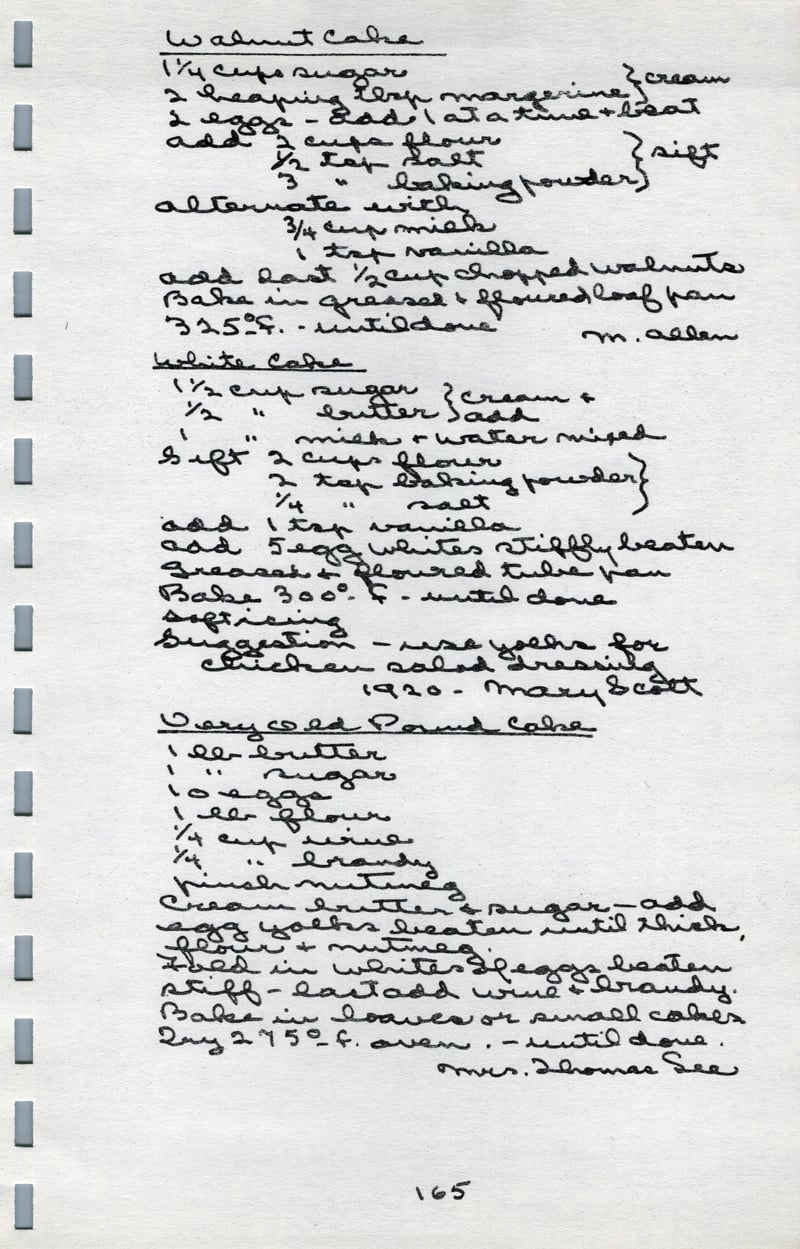 Walnut Cake
1 1/4 cups sugar } cream
2 heaping tbsp margerine
2 eggs - add 1 at a time + beat
add 2 cups flour
1/2 tsp salt } sift
3 " baking powder
alternate with
3/4 cup milk
1 tsp vanilla
add last 1/2 cup chopped walnuts
Bake in greased + floured loaf pan
325° F. - until done
M. Allen
White Cake
1 1/2 cup sugar } cream +
1/2 " butter } add
1 " milk + water mixed
Sift 2 cups flour
2 tsp baking powder }
1/4 " salt
add 1 tsp vanilla
add 5 egg whites stiffly beaten
Greased + floured tube pan
Bake 300° F - until done
Soft icing
Suggestion - use yolks for
chicken salad dressing
1920 - Mary Scott
Very Old Pound Cake
1 lb butter
1 " sugar
10 eggs
1 lb flour
1/4 cup wine
1/4 " brandy
pinch nutmeg
Cream butter + sugar - add
egg yolks beaten until thick,
flour + nutmeg.
Fold in whites of eggs beaten
stiff - last add wine + brandy.
Bake in loaves or small cakes
Try 275° F. oven. - until done.
Mrs. Thomas See
165